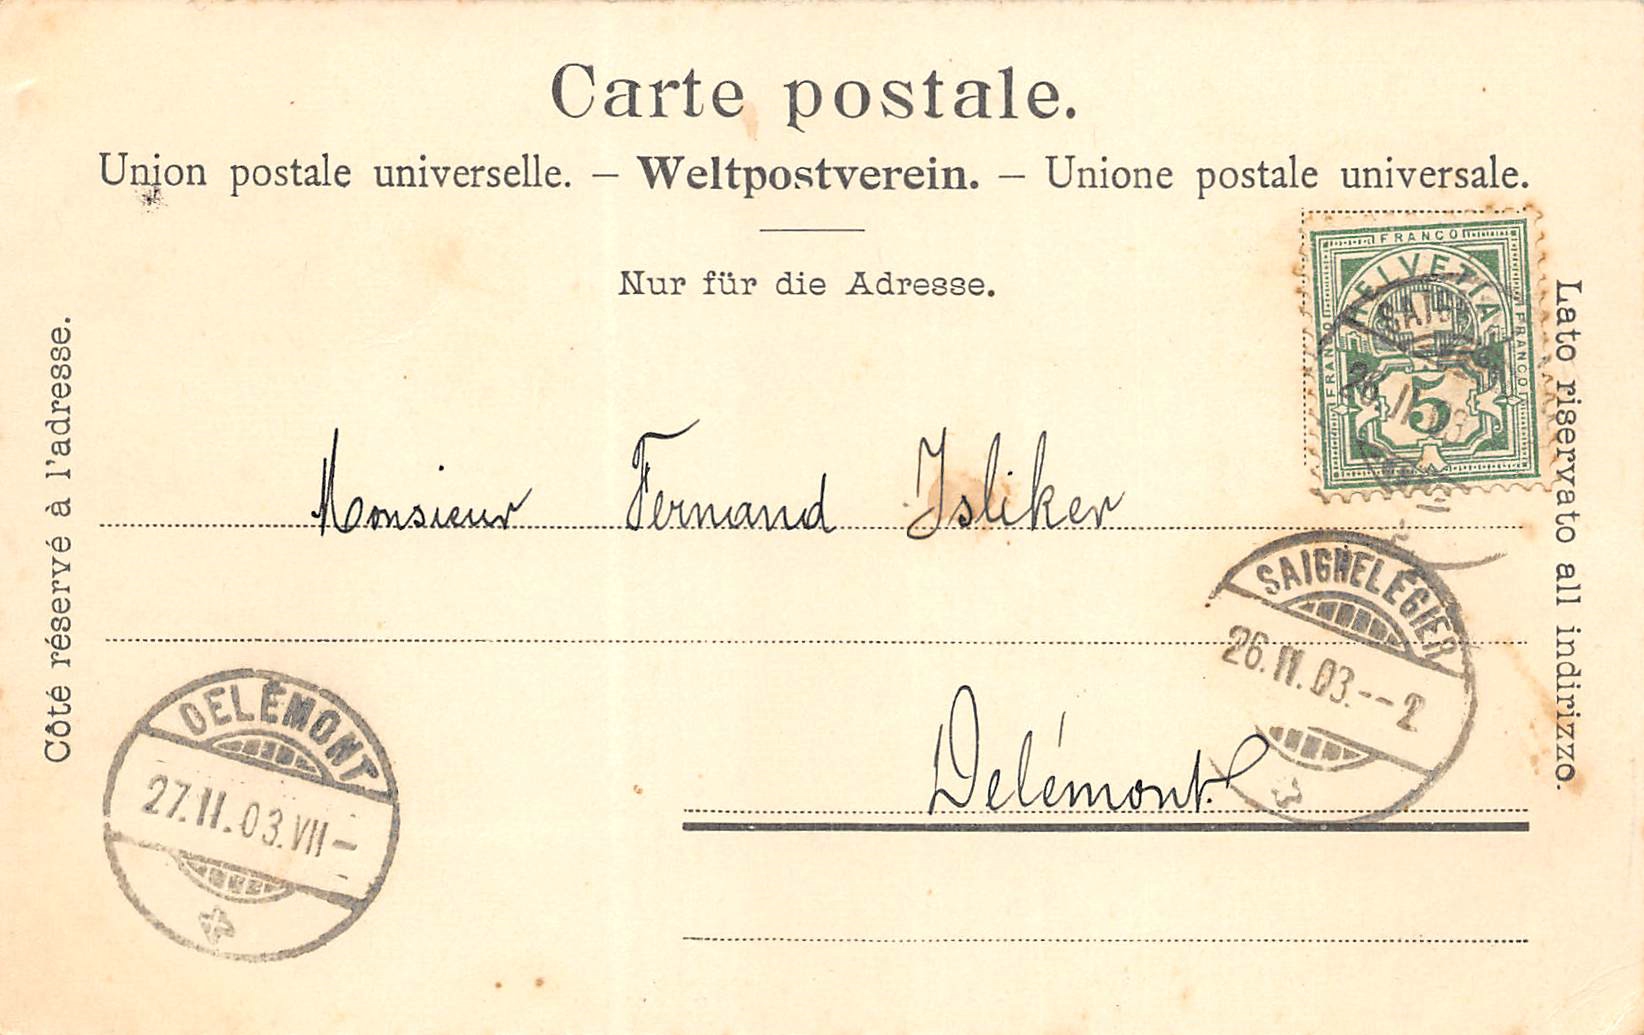 Carte postale.
Union postale universelle. — Weltpostverein. — Unione postale universale.
Nur für die Adresse.
Côté réservé à l'adresse.
Lato riservato all indirizzo.
FRANCO
HELVETIA
FRANCO
FRANCO
5
26 II 03
Monsieur Fernand Isliker
SAIGNELÉGIER
26.11.03.--2
Delémont.
DELÉMONT
27.11.03.VII-